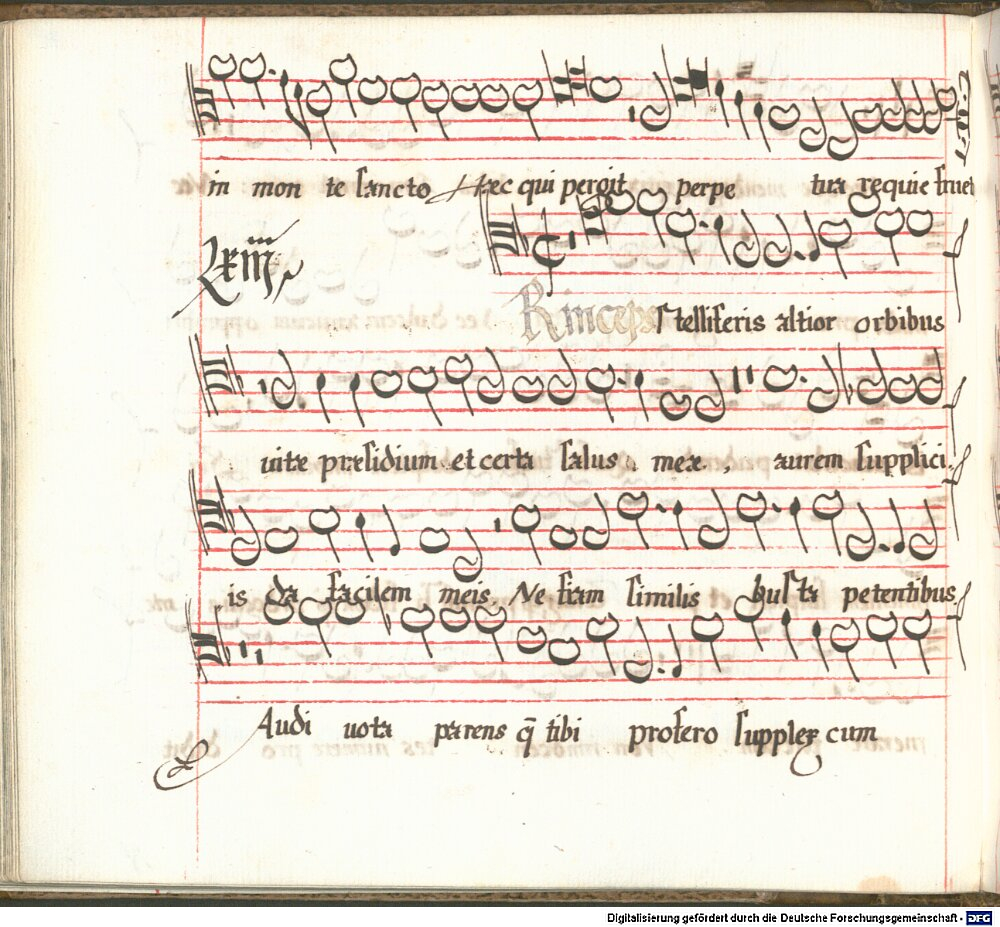 in mon te sancto Hec qui pergit perpe tua requie fruet
Lxiiij
Rinceps stelliferis altior orbibus
uite presidium et certa salus mee, aurem supplici
is da facilem meis Ne fiam similis busta petentibus
Audi uota parens q̃ tibi profero supplex cum
Digitalisierung gefördert durch die Deutsche Forschungsgemeinschaft - DFG